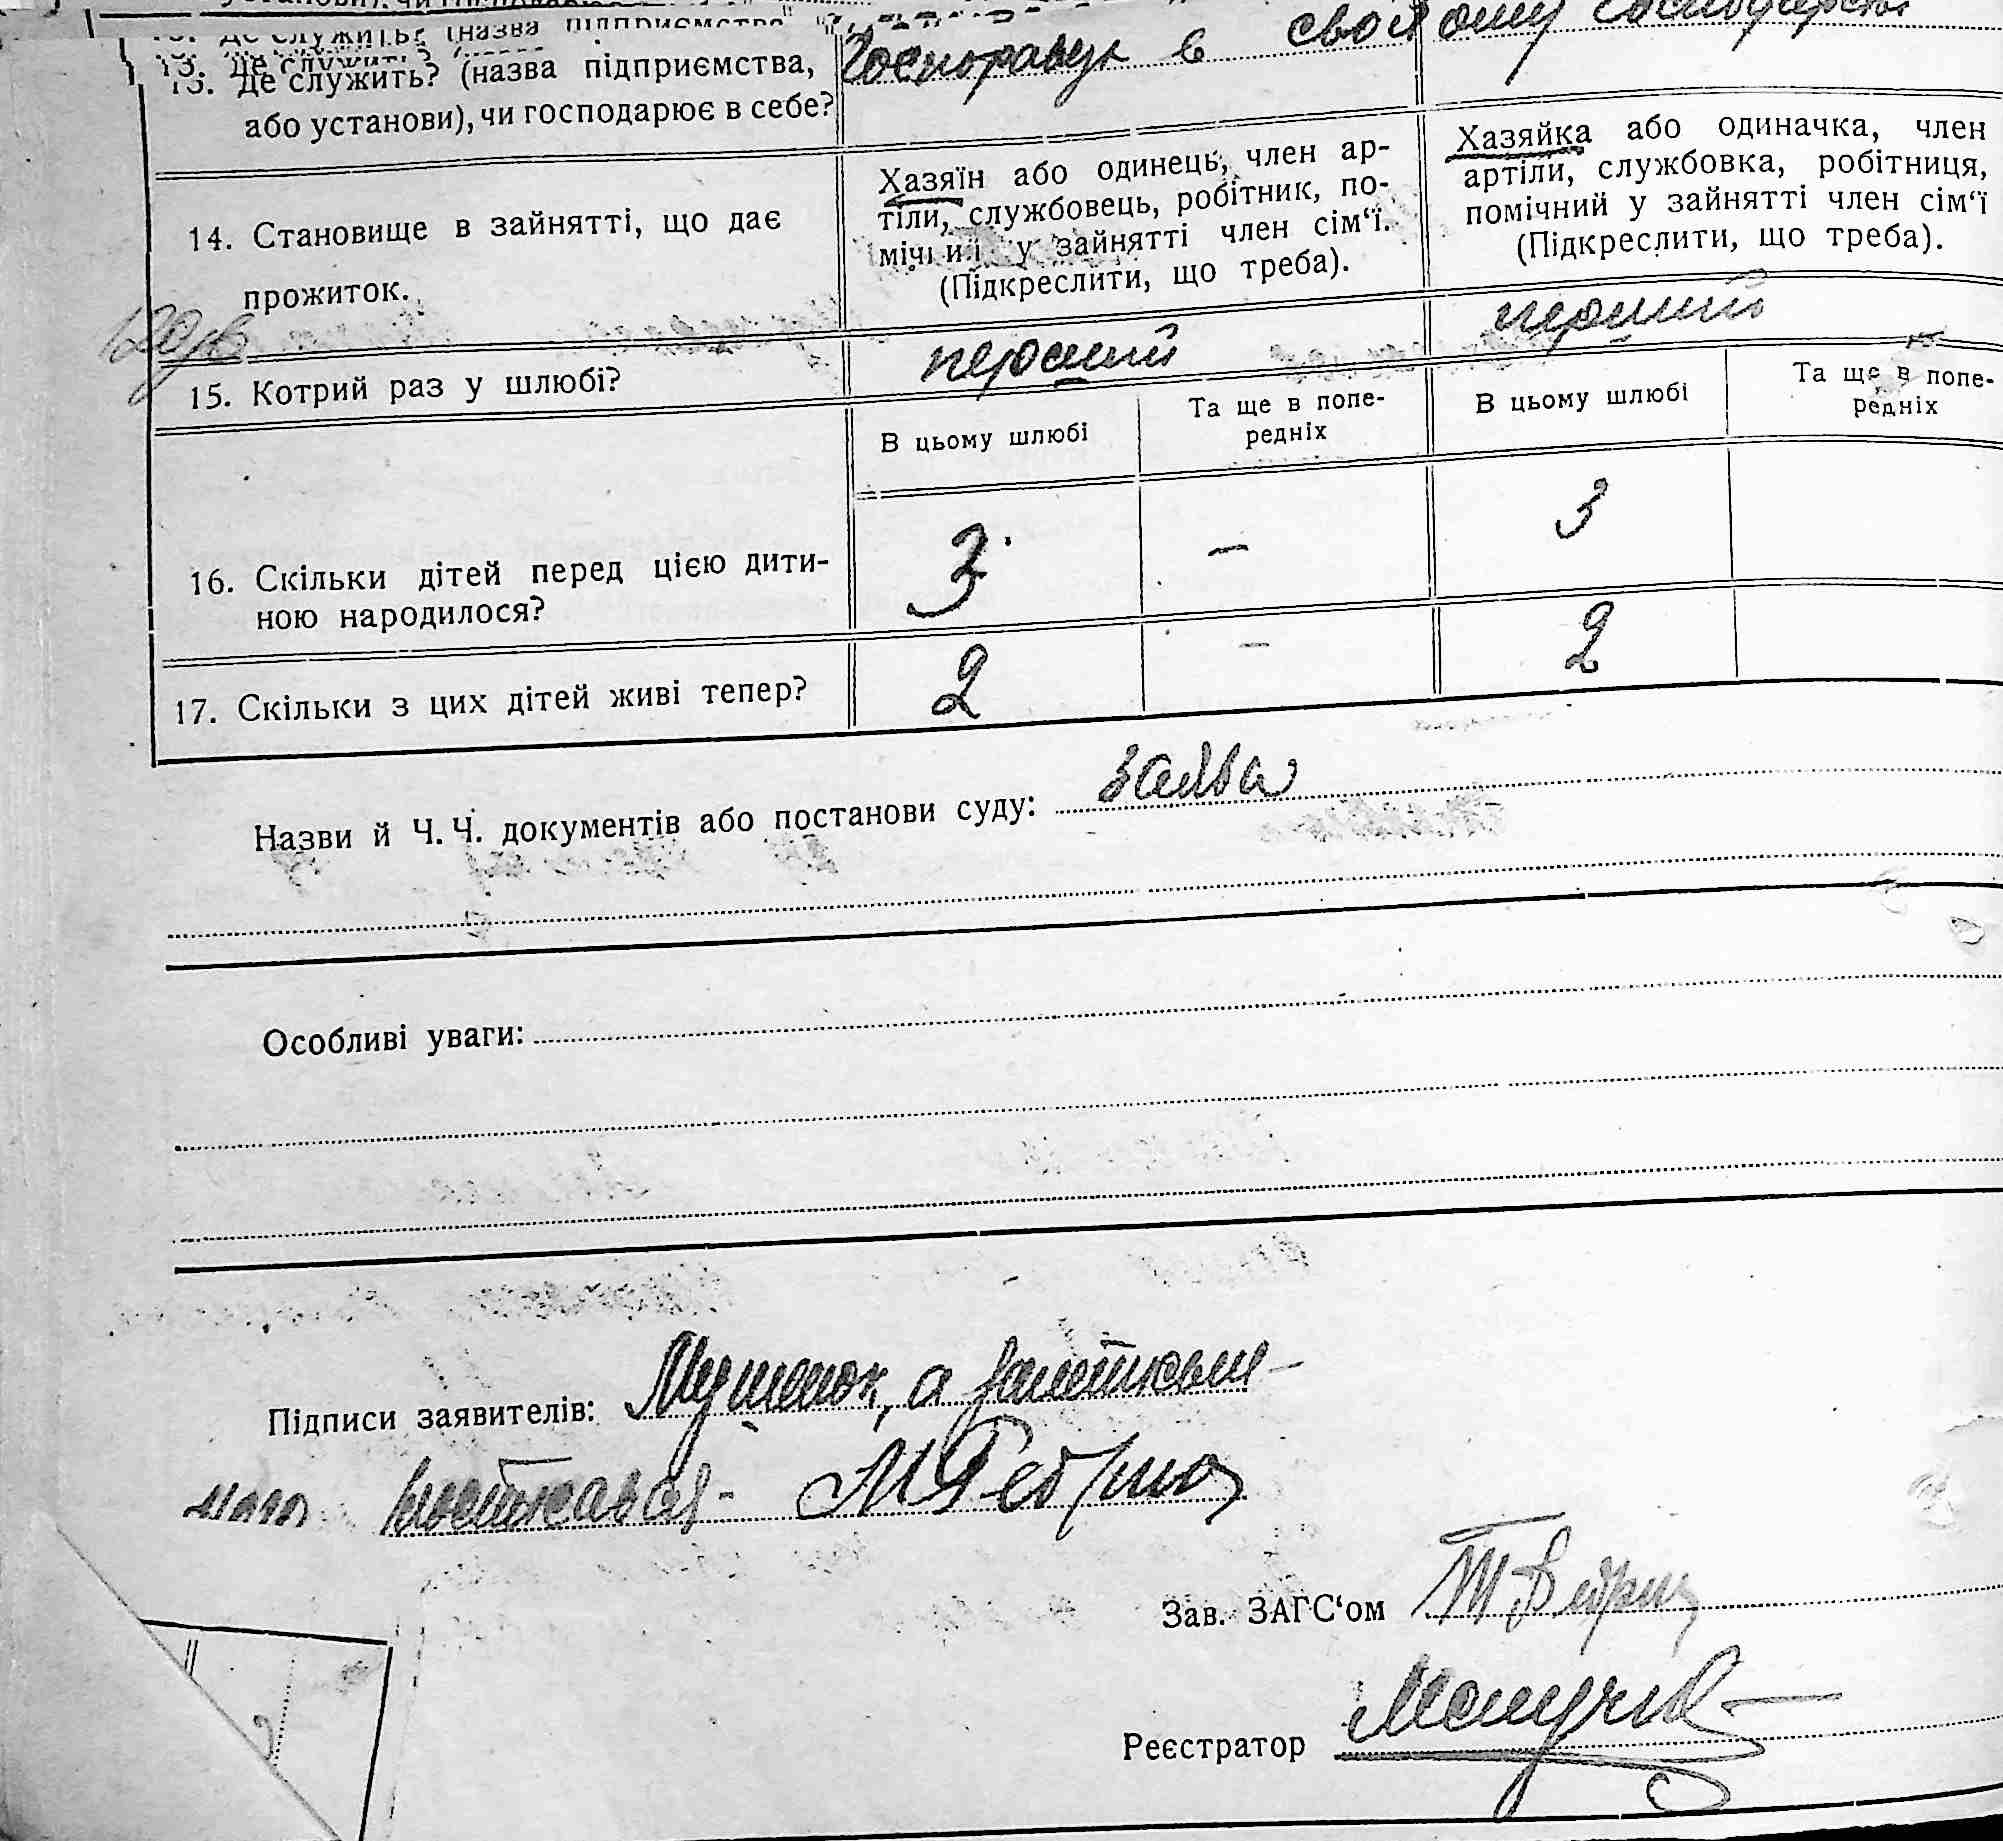 13. Де служить? (назва підприємства, або установи), чи господарює в себе?
в свойому
14. Становище в зайнятті, що дає прожиток.
Хазяїн або одинець, член ар-
тіли, службовець, робітник, по-
мічний у зайнятті член сім‘ї.
(Підкреслити, що треба).
Хазяйка або одиначка, член
артіли, службовка, робітниця,
помічний у зайнятті член сім‘ї
(Підкреслити, що треба).
15. Котрий раз у шлюбі?
перший
перший
В цьому шлюбі
Та ще в попе-
редніх
В цьому шлюбі
Та ще в попе-
редніх
16. Скільки дітей перед цією дити-
ною народилося?
3
—
3
17. Скільки з цих дітей живі тепер?
2
—
2
Назви й Ч. Ч. документів або постанови суду: заява
Особливі уваги:
Підписи заявителів:
Зав. ЗАГС‘ом
Реєстратор